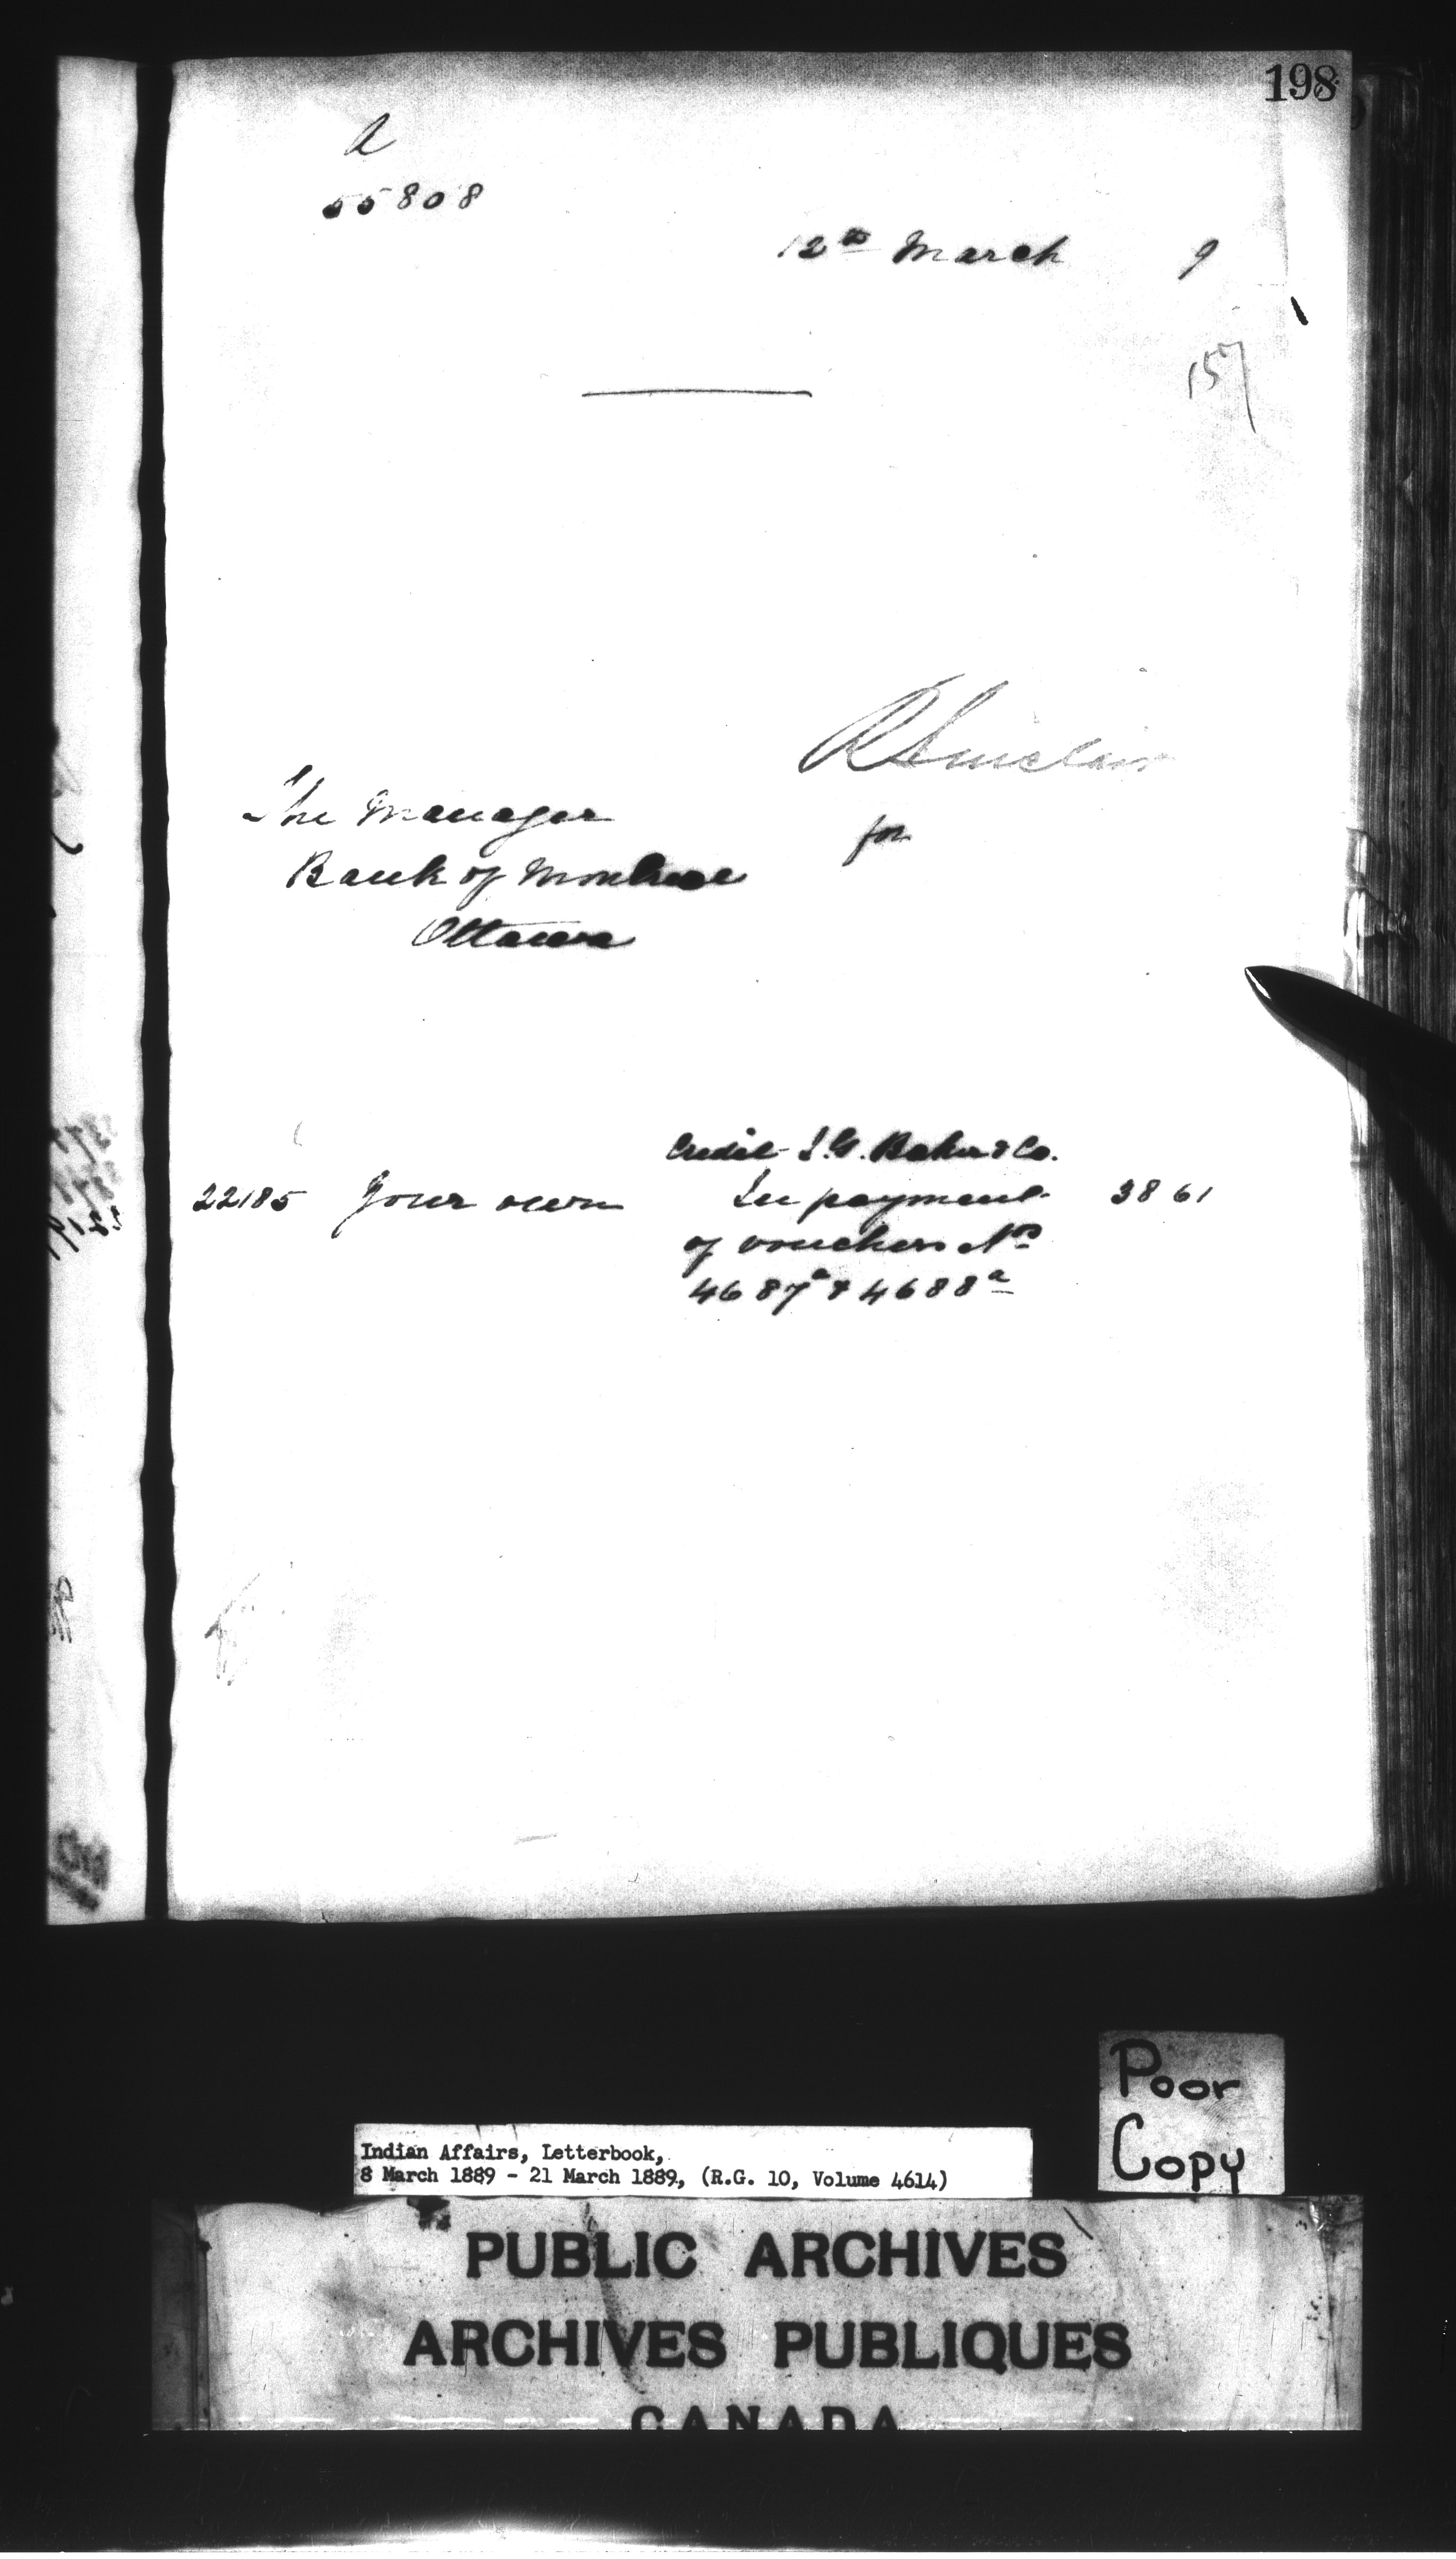 198
A
55808
12th March 9
157
R Sinclair
for
The Manager
Bank of Montreal
Ottawa
Credit I.G. Baker & Co.
22185 Your own In payment 38 61
of vouchers Nos
4687a & 4688a
Poor
Copy
Indian Affairs, Letterbook,
8 March 1889 - 21 March 1889, (R.G. 10, Volume 4614)
PUBLIC ARCHIVES
ARCHIVES PUBLIQUES
CANADA